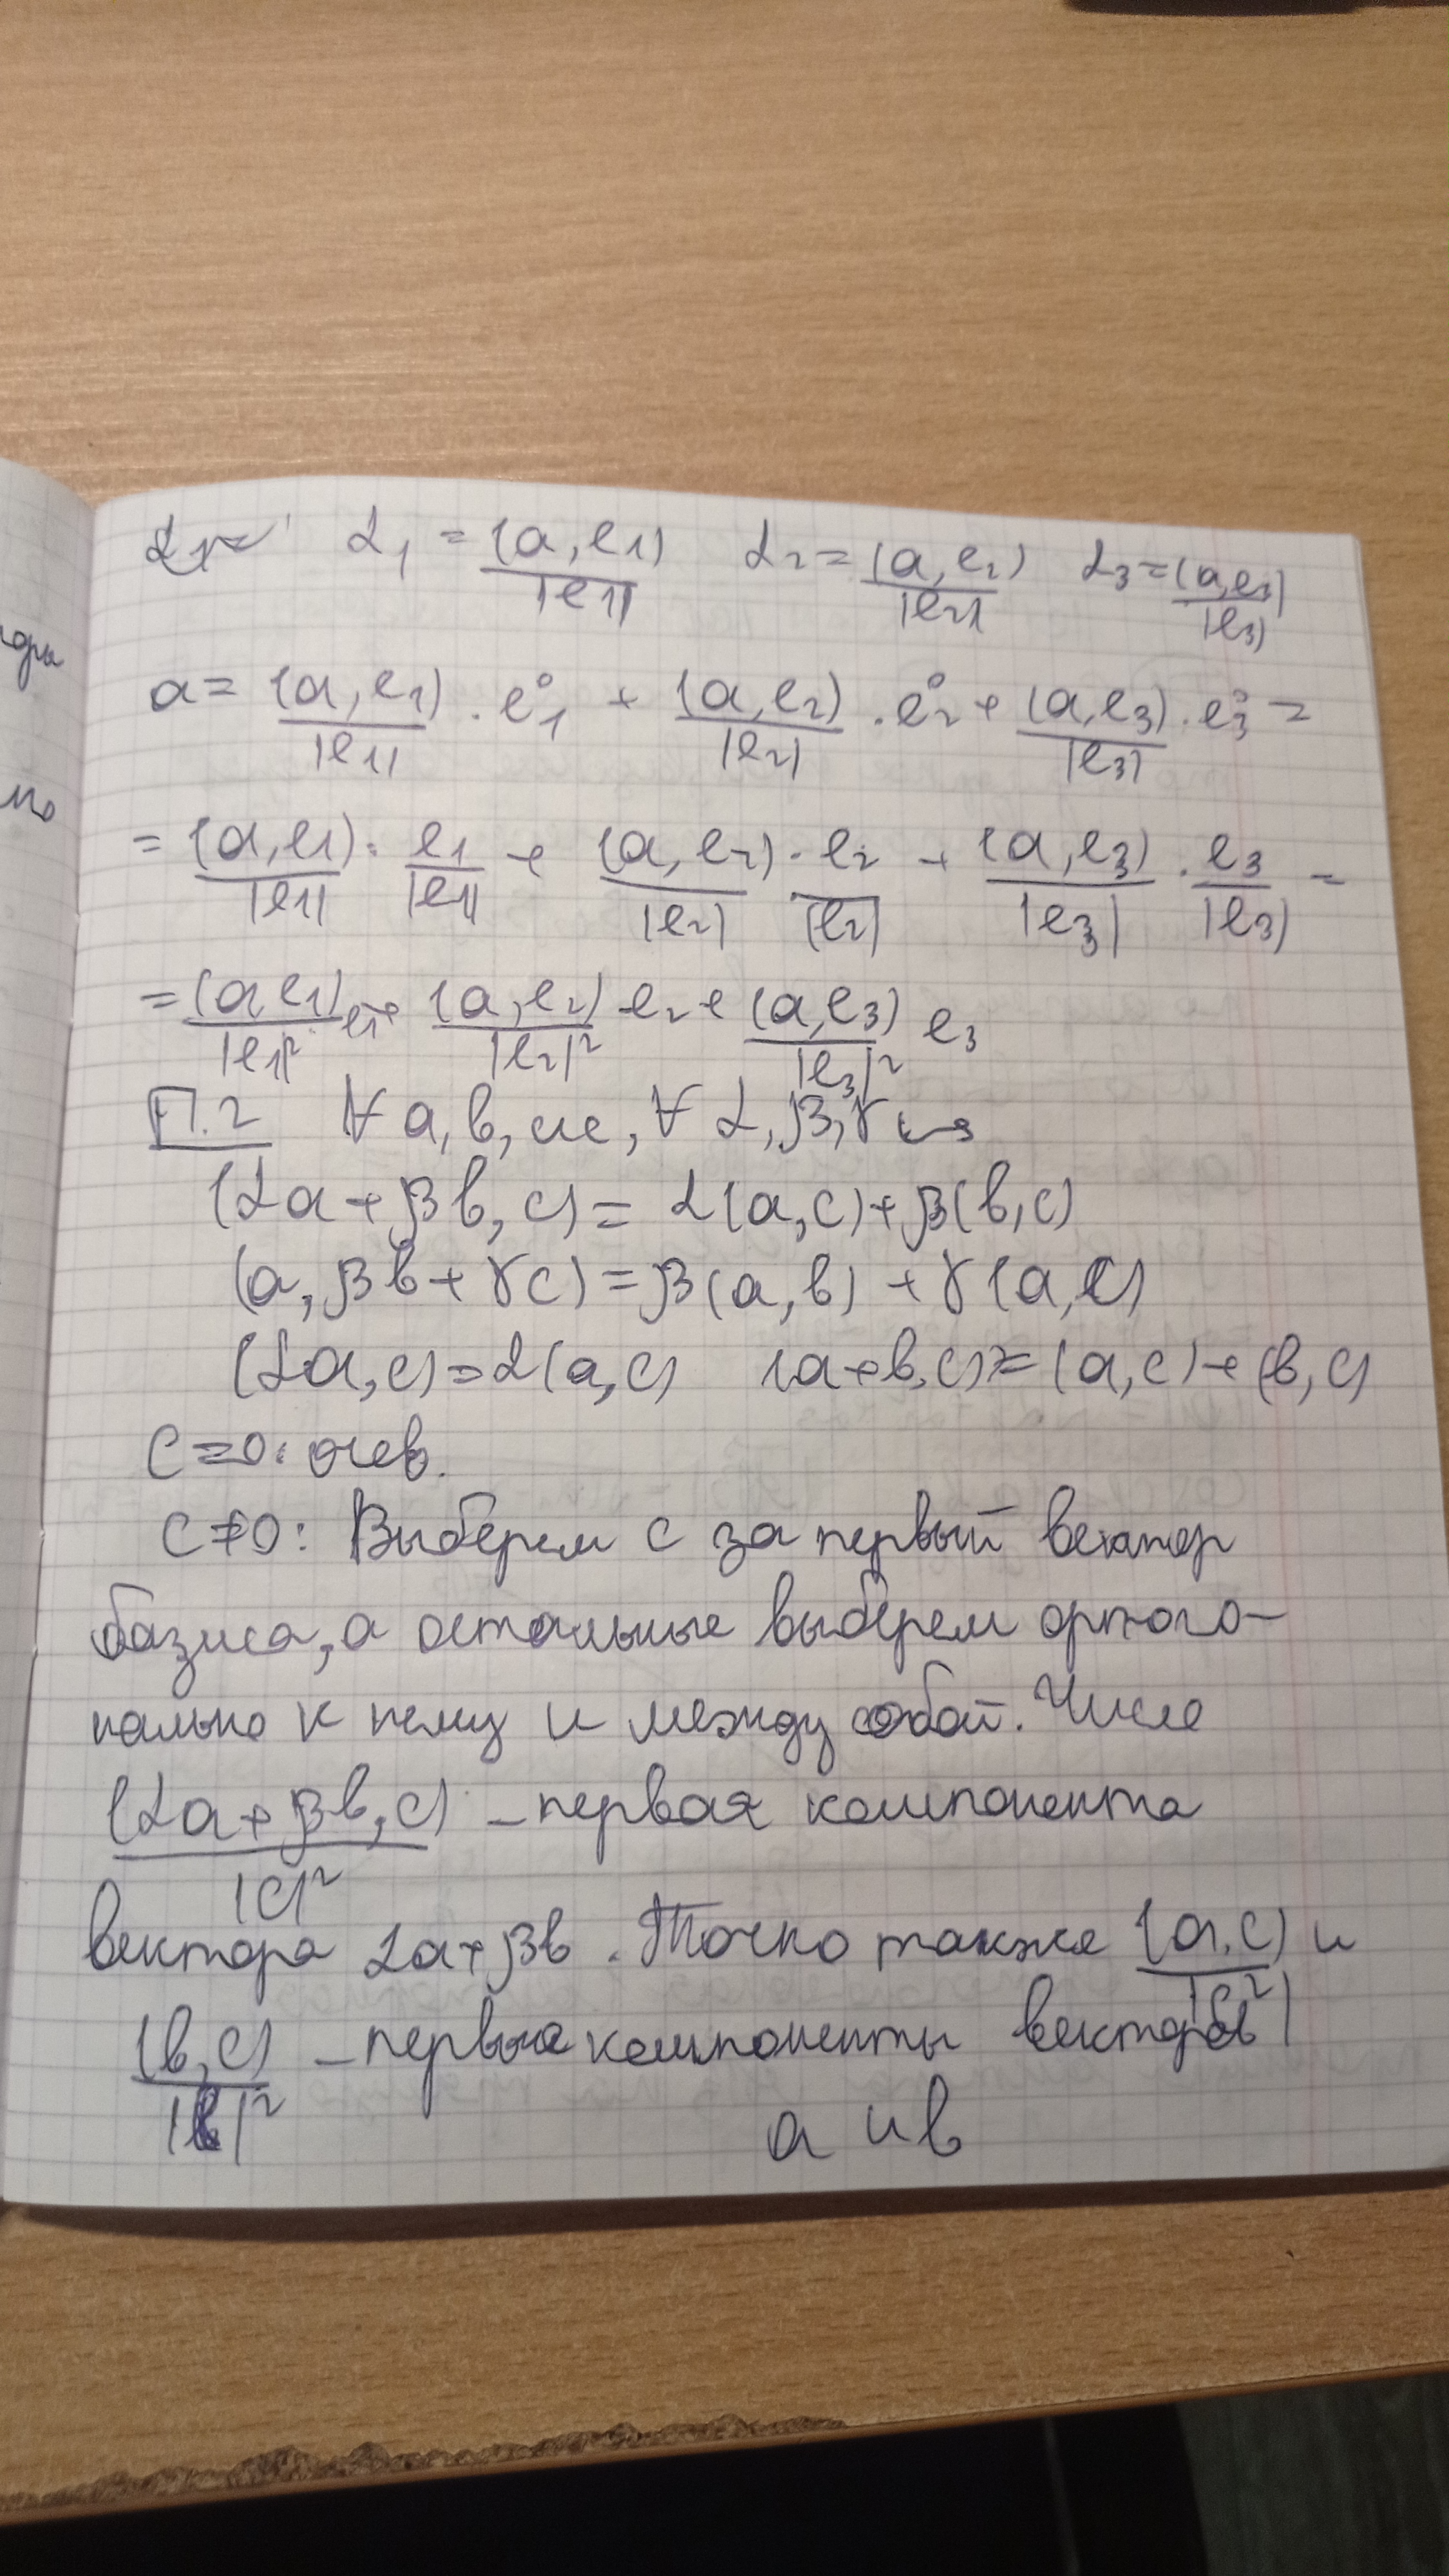 α₁ = α₁ = (a, e₁)/|e₁| α₂ = (a, e₂)/|e₂| α₃ = (a, e₃)/|e₃|
a = (a, e₁)/|e₁| · e₁° + (a, e₂)/|e₂| · e₂° + (a, e₃)/|e₃| · e₃° =
= (a, e₁)/|e₁| · e₁/|e₁| + (a, e₂)/|e₂| · e₂/|e₂| + (a, e₃)/|e₃| · e₃/|e₃| =
= (a, e₁)/|e₁|² e₁ + (a, e₂)/|e₂|² e₂ + (a, e₃)/|e₃|² e₃
П.2 ∀ a, b, и c, ∀ α, β, γ ↪
(αa + βb, c) = α(a, c) + β(b, c)
(a, βb + γc) = β(a, b) + γ(a, c)
(αa, c) = α(a, c) (a + b, c) = (a, c) + (b, c)
c = 0: очев.
c ≠ 0: Выберем c за первый вектор
базиса, а остальные выберем ортого-
нально к нему и между собой. Число
(αa + βb, c)/|c|² – первая компонента
вектора αa + βb. Точно также (a, c)/|c|² и
(b, c)/|c|² – первые компоненты векторов
a и b